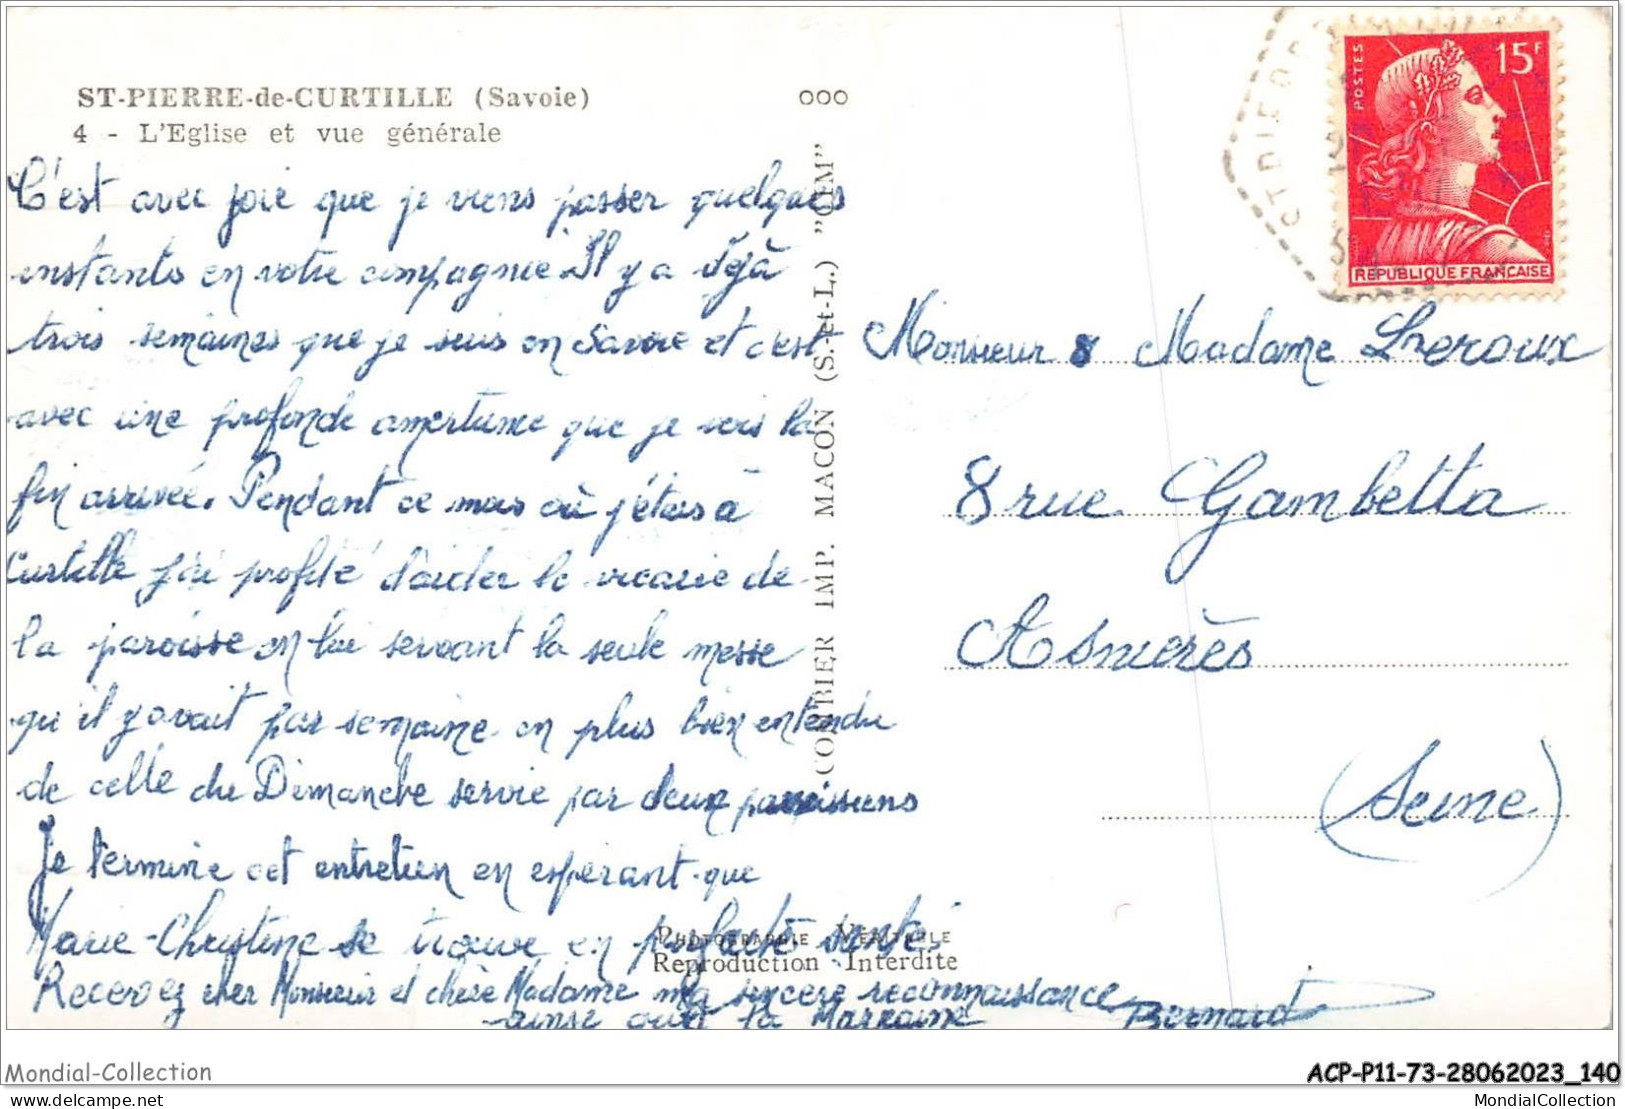 ST-PIERRE-de-CURTILLE (Savoie)
4 - L'Eglise et vue générale
C'est avec joie que je viens passer quelques
instants en votre compagnie. Il y a déjà
trois semaines que je suis en Savoie et c'est
avec une profonde amertume que je vois la
fin arrivée. Pendant ce mois où j'étais à
Curtille j'ai profité d'aider le vicaire de
la paroisse en lui servant la seule messe
qu'il y avait par semaine en plus bien entendu
de celle du Dimanche servie par deux paroissiens
Je termine cet entretien en espérant que
Marie-Christine se trouve en parfaite santé.
Recevez cher Monsieur et chère Madame ma sincère reconnaissance
ainsi que la Marraine
Bernard
PHOTOGRAPHIE VÉRITABLE
Reproduction Interdite
COMBIER IMP. MACON (S.-et-L.) "CIM"
ooo
POSTES
15F
REPUBLIQUE FRANÇAISE
Monsieur & Madame Leroux
8 rue Gambetta
Asnières
(Seine)
Mondial-Collection
ACP-P11-73-28062023_140
delcampe.net
MondialCollection